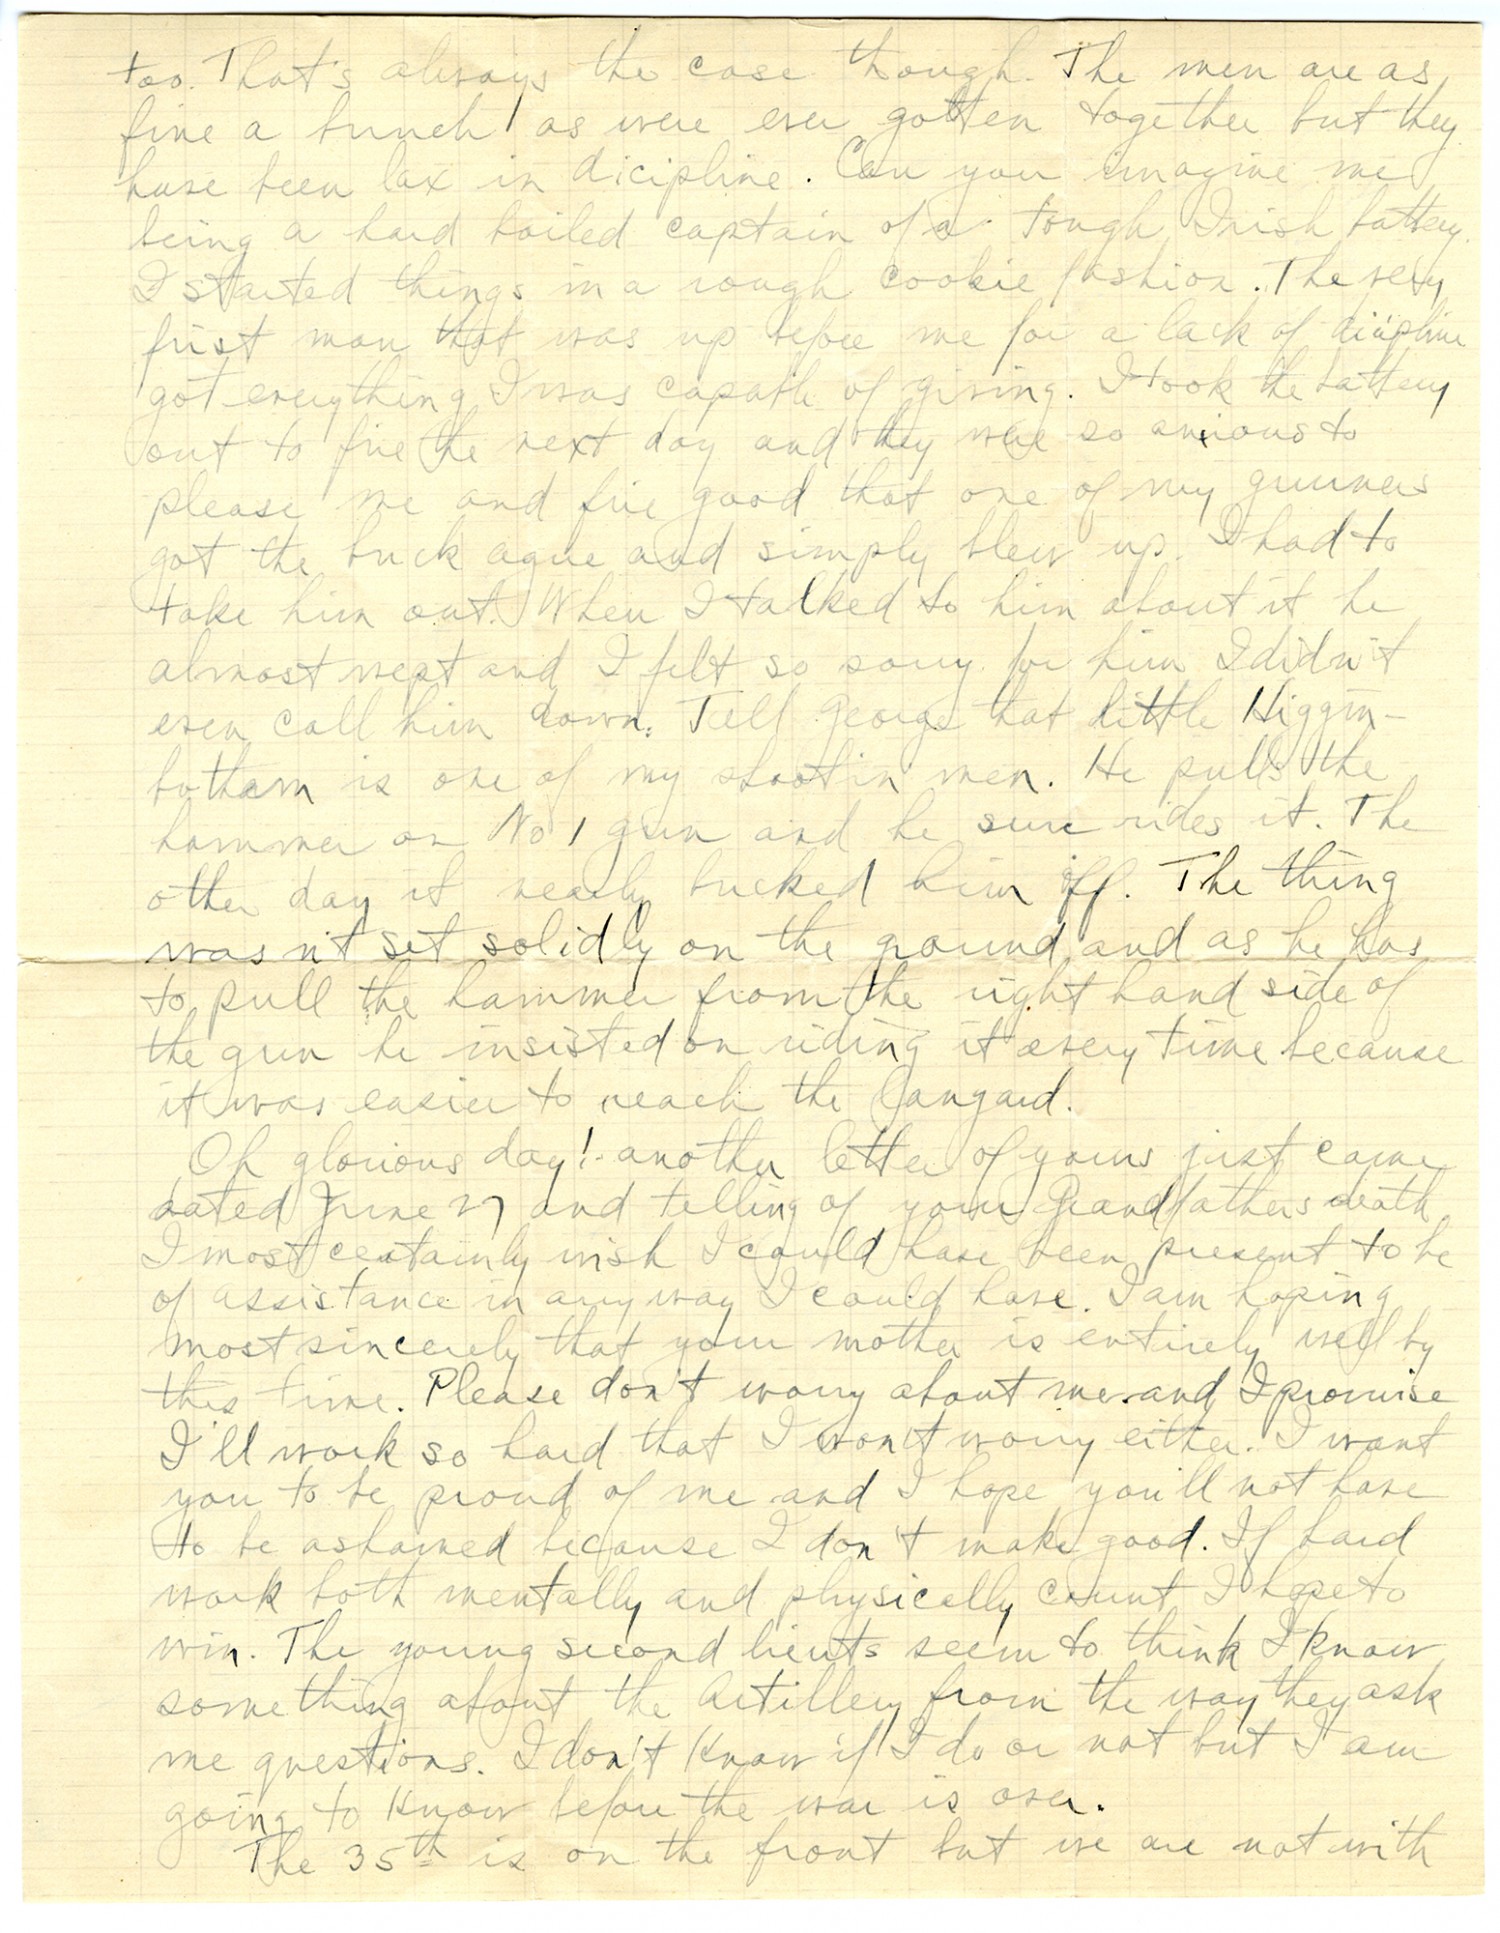 too. That's always the case though. The men are as
fine a bunch as were ever gotten together but they
have been lax in dicipline. Can you imagine me
being a hard boiled captain of a tough Irish battery.
I started things in a rough cookie fashion. The very
first man that was up before me for a lack of dicipline
got everything I was capable of giving. I took the battery
out to fire the next day and they were so anxious to
please me and fire good that one of my gunners
got the buck ague and simply blew up. I had to
take him out. When I talked to him about it he
almost wept and I felt so sorry for him I didn't
even call him down. Tell George that little Higgin-
botham is one of my shootin men. He pulls the
hammer on No 1 gun and he sure rides it. The
other day it nearly bucked him off. The thing
wasn't set solidly on the ground and as he has
to pull the hammer from the right hand side of
the gun he insisted on riding it every time because
it was easier to reach the langard.
Oh glorious day! another letter of yours just came
dated June 27 and telling of your Grandfathers death
I most certainly wish I could have been present to be
of assistance in any way I could have. I am hoping
most sincerely that your mother is entirely well by
this time. Please don't worry about me and I promise
I'll work so hard that I won't worry either. I want
you to be proud of me and I hope you'll not have
to be ashamed because I don't make good. If hard
work both mentally and physically count I hope to
win. The young second lieuts seem to think I know
something about the Artillery from the way they ask
me questions. I don't know if I do or not but I am
going to know before the war is over.
The 35th is on the front but we are not with